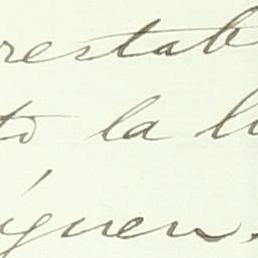 restab
to la l
íguen.